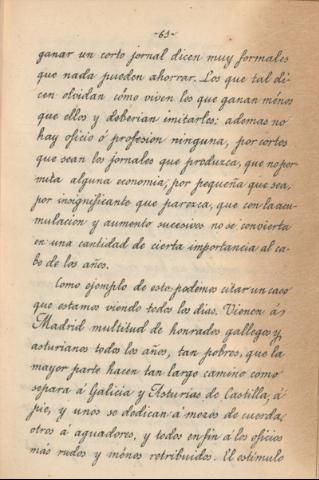 -63-
ganar un corto jornal dicen muy formales
que nada pueden ahorrar. Los que tal di-
cen olvidan cómo viven los que ganan ménos
que ellos y deberian imitarles: ademas no
hay oficio ó profesion ninguna, por cortos
que sean los jornales que produzca, que no per-
mita alguna economía; por pequeña que sea,
por insignificante que parezca, que con la acu-
mulacion y aumento sucesivos no se convierta
en una cantidad de cierta importancia al ca-
bo de los años.
Como ejemplo de esto podemos citar un caso
que estamos viendo todos los dias. Vienen á
Madrid multitud de honrados gallegos y
asturianos todos los años, tan pobres, que la
mayor parte hacen tan largo camino como
separa á Galicia y Asturias de Castilla, á
pie, y unos se dedican á mozos de cuerda,
otros á aguadores, y todos en fin á los oficios
más rudos y ménos retribuidos. El estímulo